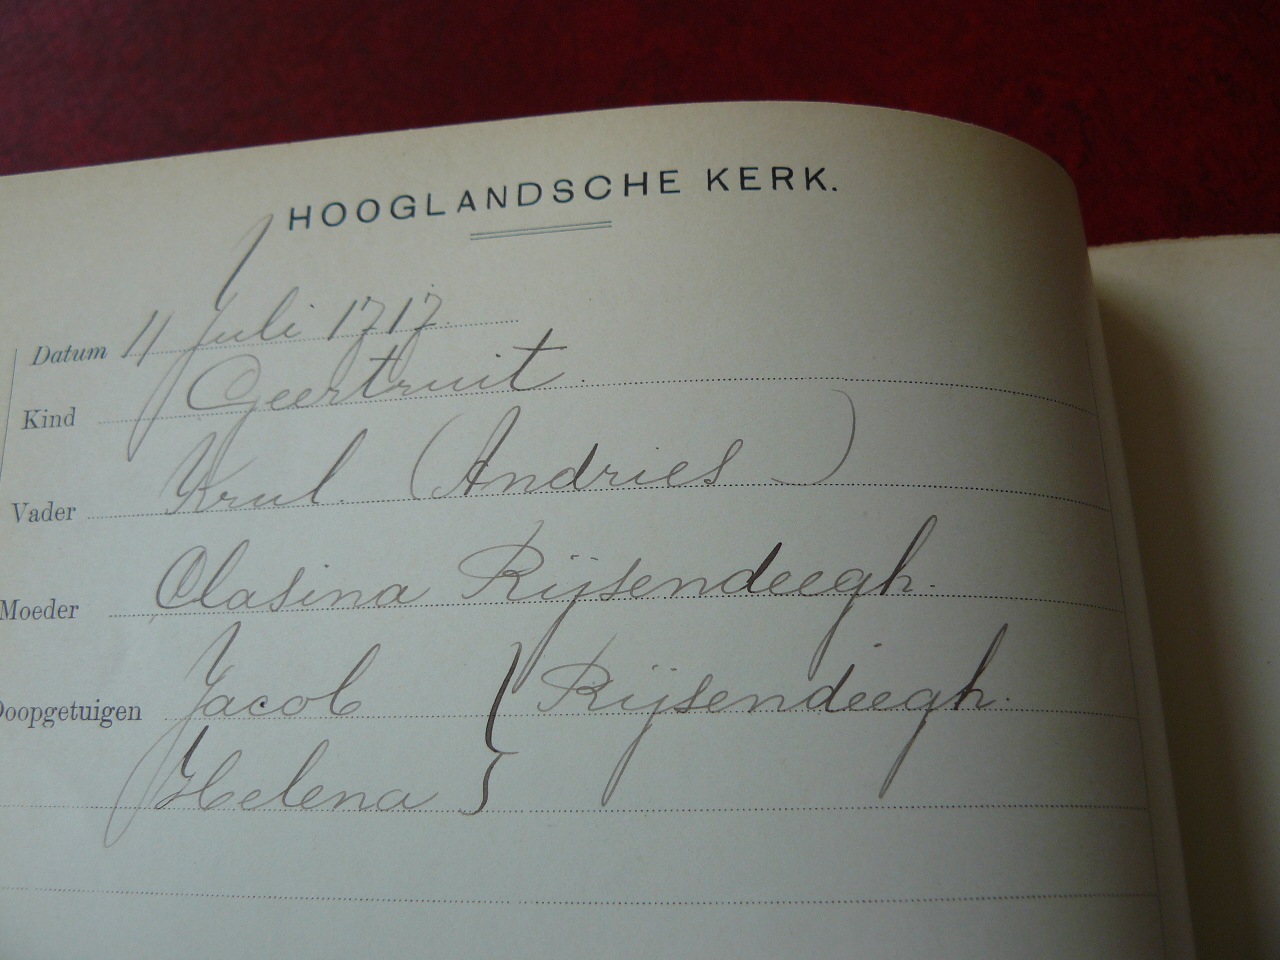 HOOGLANDSCHE KERK.
Datum 11 Juli 1717.
Kind Geertruit.
Vader Krul. (Andries)
Moeder Clasina Rijsendeegh.
Doopgetuigen Jacob } Rijsendeegh.
Helena